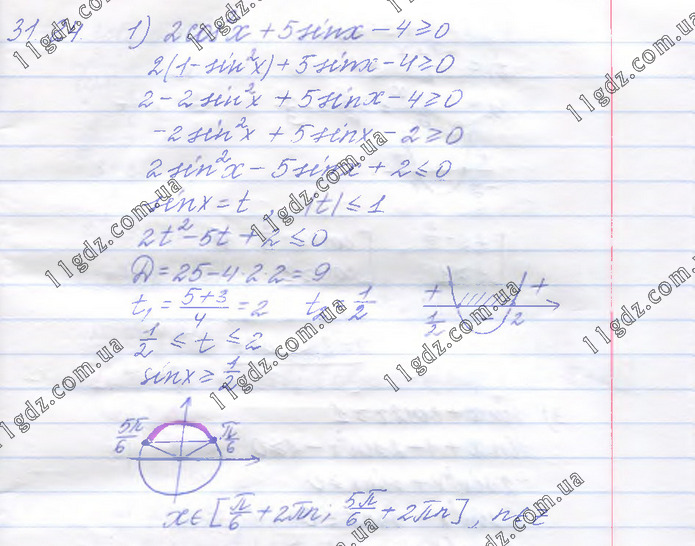 31.34. 1) 2cos²x + 5sinx - 4 ≥ 0
2(1 - sin²x) + 5sinx - 4 ≥ 0
2 - 2sin²x + 5sinx - 4 ≥ 0
-2sin²x + 5sinx - 2 ≥ 0
2sin²x - 5sinx + 2 ≤ 0
sinx = t |t| ≤ 1
2t² - 5t + 2 ≤ 0
D = 25 - 4·2·2 = 9
t₁ = (5+3)/4 = 2 t₂ = 1/2
+ - +
1/2 2
1/2 ≤ t ≤ 2
sinx ≥ 1/2
5π/6 π/6
x ∈ [π/6 + 2πn; 5π/6 + 2πn], n ∈ Z
11gdz.com.ua
11gdz.com.ua
11gdz.com.ua
11gdz.com.ua
11gdz.com.ua
11gdz.com.ua
11gdz.com.ua
11gdz.com.ua
11gdz.com.ua